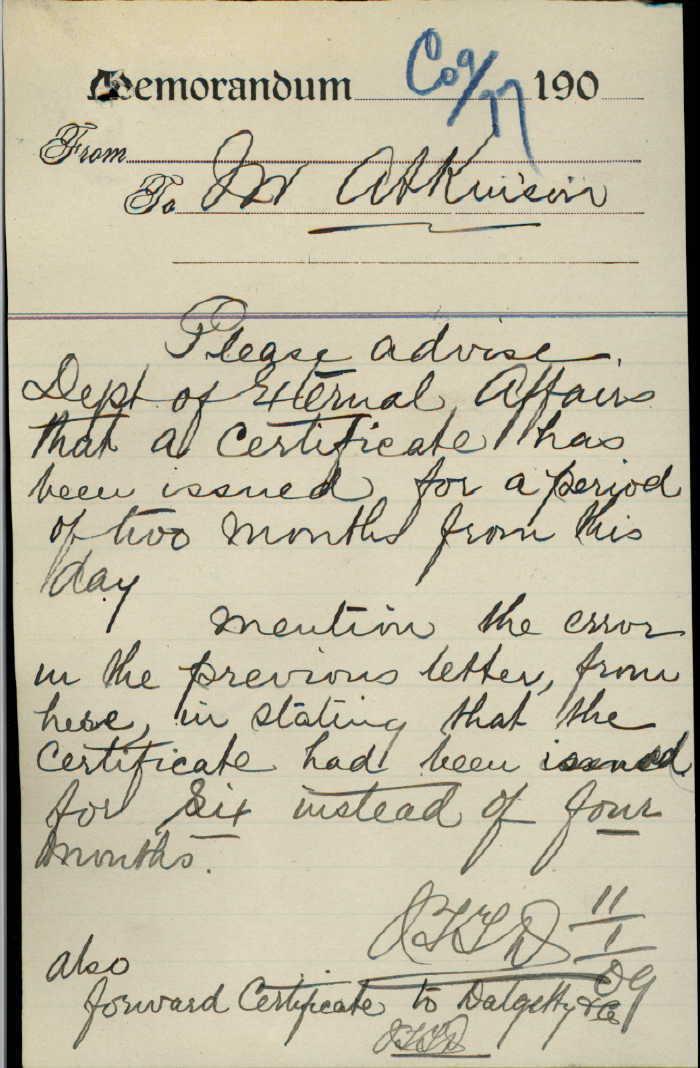 Memorandum C09/77 190
From
To Mr Atkinson
Please advise
Dept of External Affairs
that a Certificate has
been issued for a period
of two months from this
day
Mention the error
in the previous letter, from
here, in stating that the
Certificate had been issued
for six instead of four
months.
11
1
09
also
forward Certificate to Dalgetty & Co